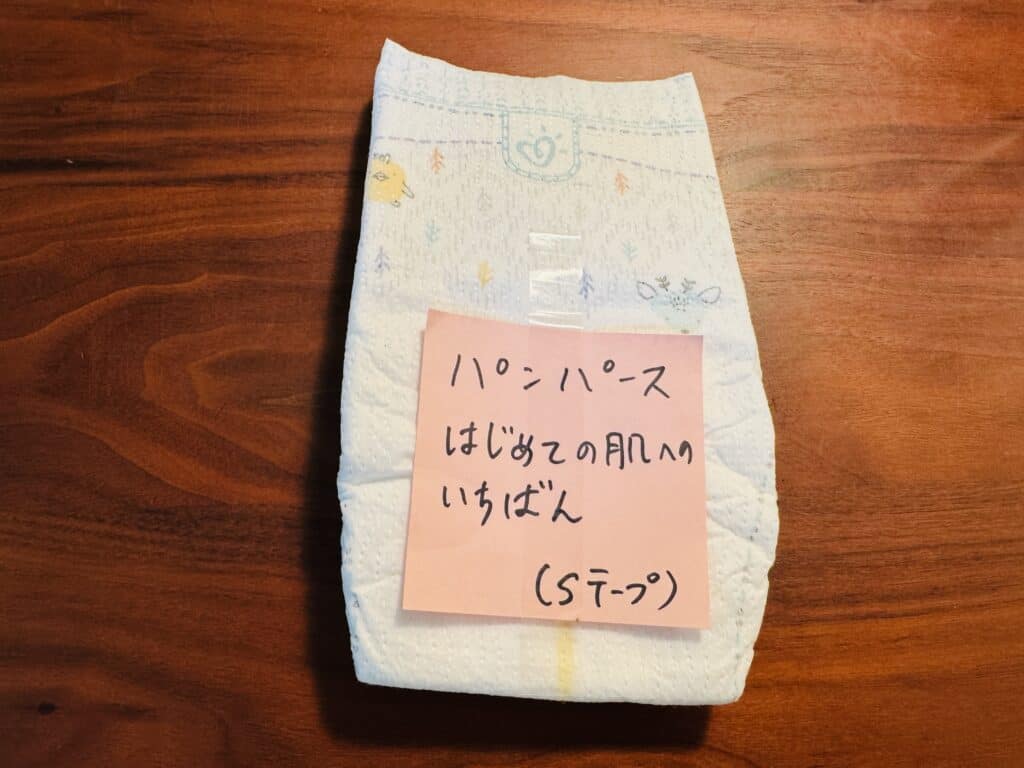 パンパース
はじめての肌への
いちばん
(Sテープ)